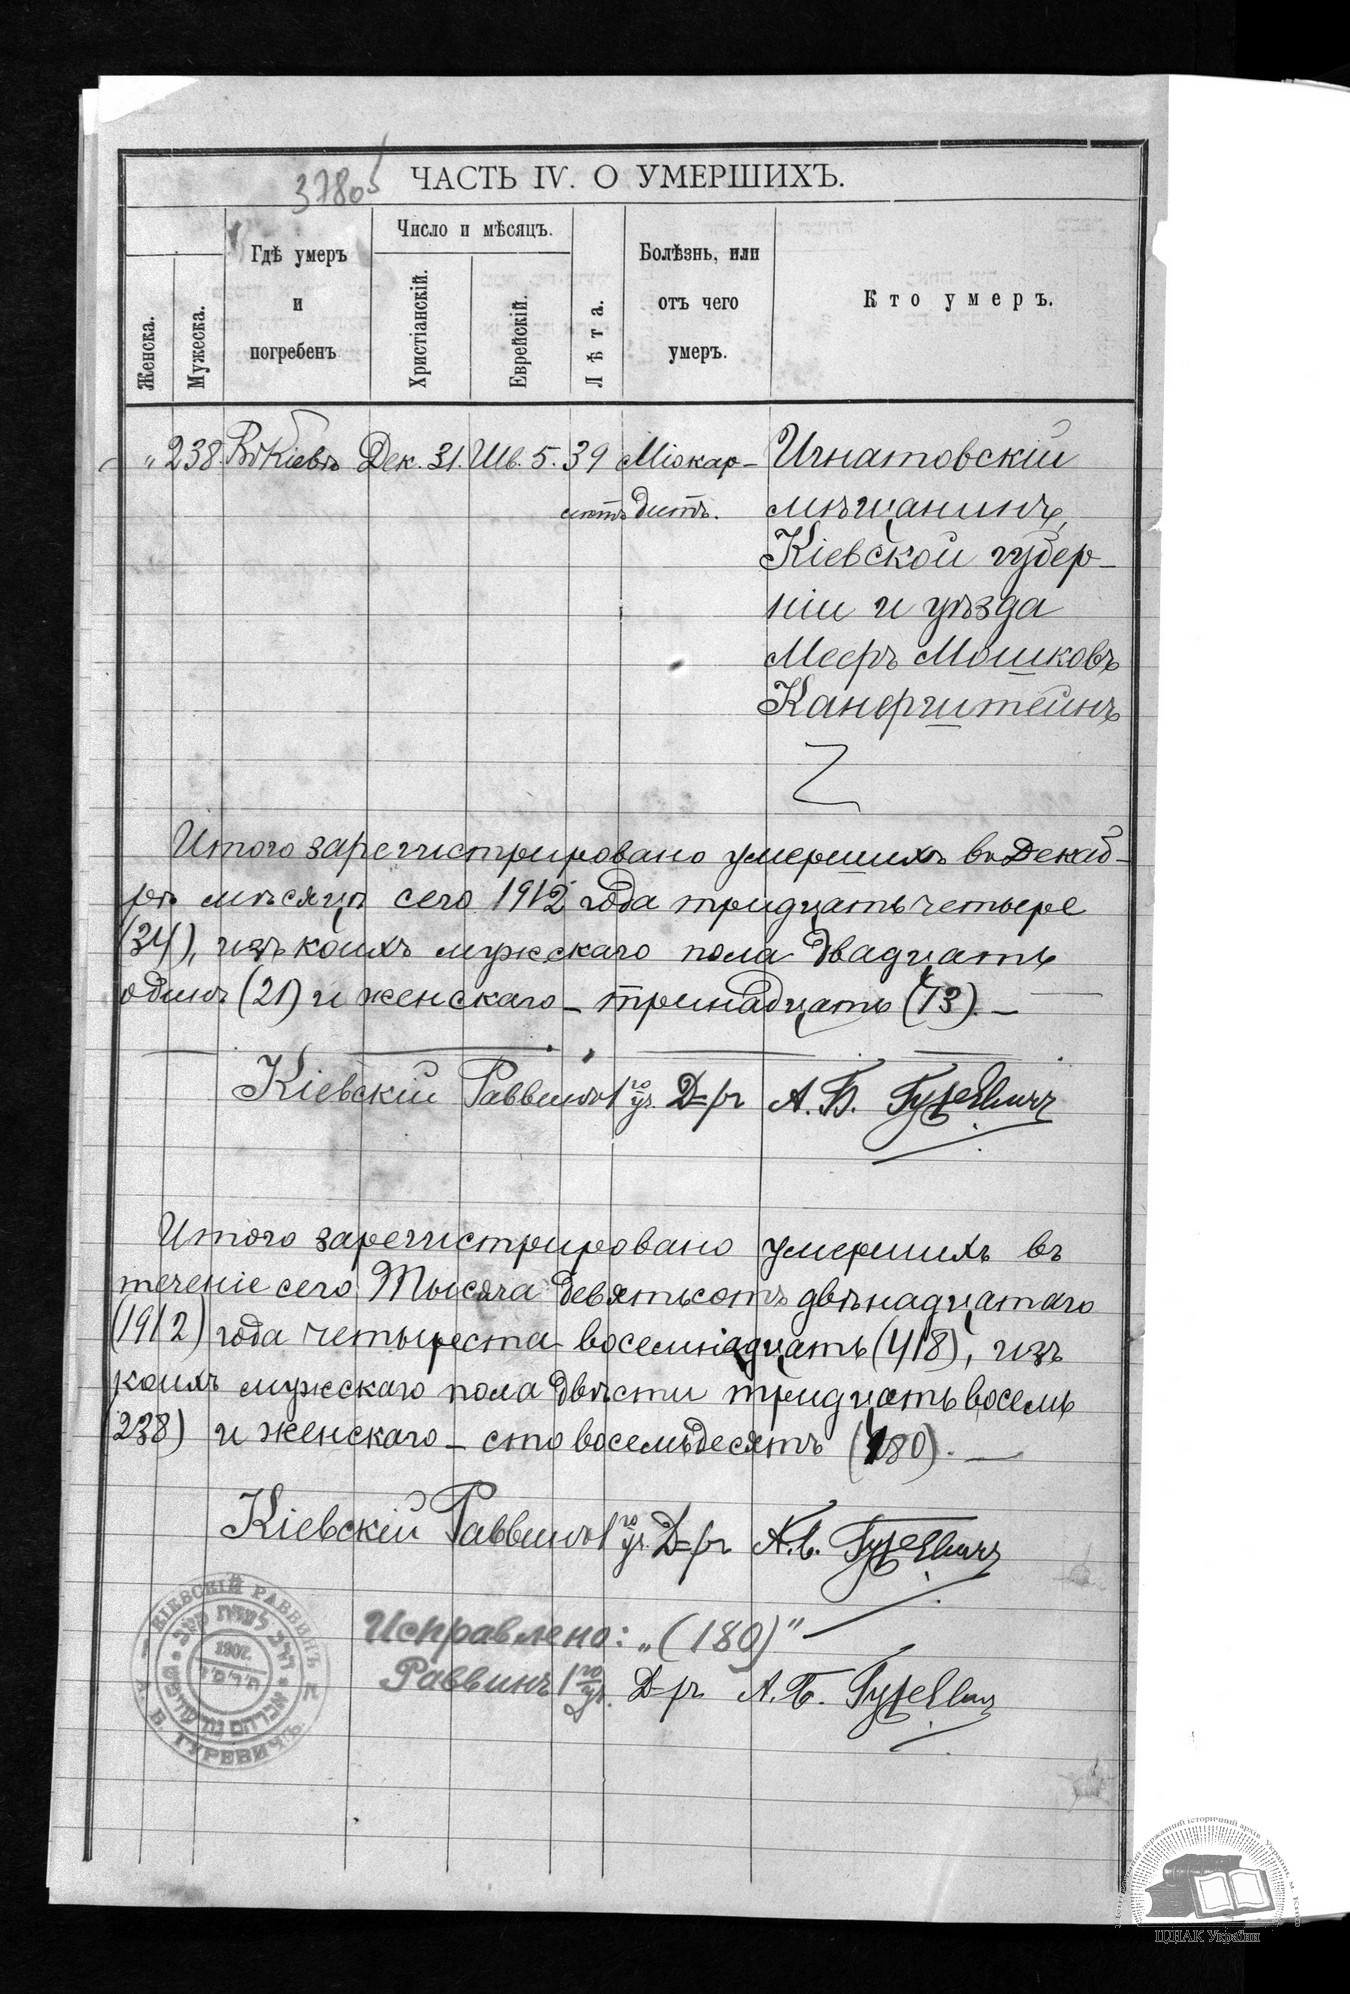 3780
ЧАСТЬ IV. О УМЕРШИХЪ.
Женска.
Мужеска.
Гдѣ умеръ
и
погребенъ
Число и мѣсяцъ.
Христіанскій.
Еврейскій.
Лѣта.
Болѣзнь, или
отъ чего
умеръ.
Кто умеръ.
" 238. Въ Кіевѣ Дек. 31. Шв. 5. 39 Міокар- Игнатовскій
лѣтъ дитъ. мѣщанинъ,
Кіевской губер-
ніи и уѣзда
Мееръ Мошковъ
Канерштейнъ
Итого зарегистрировано умершихъ въ Декаб-
рѣ мѣсяцѣ сего 1912 года тридцать четыре
(34), изъ коихъ мужскаго пола двадцать
одинъ (21) и женскаго - тринадцать (13). -
Кіевскій Раввинъ 1го уч. Д=ръ А. Б. Гуревичъ
Итого зарегистрировано умершихъ въ
теченіе сего Тысяча девятьсотъ двѣнадцатаго
(1912) года четыреста восемнадцать (418), изъ
коихъ мужскаго пола двѣсти тридцать восемь
(238) и женскаго - сто восемьдесятъ (180). -
Кіевскій Раввинъ 1го уч. Д=ръ А. Б. Гуревичъ
Исправлено: „(180)"
Раввинъ 1го уч. Д=ръ А. Б. Гуревичъ
КІЕВСКІЙ РАВВИНЪ
А. Б. ГУРЕВИЧЪ
1902.
ЦДІАК України